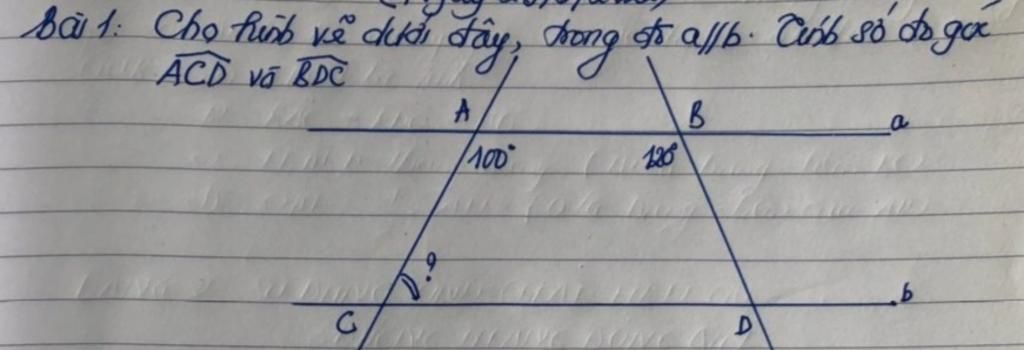 Bài 1: Cho hình vẽ dưới đây, trong đó a//b. Tính số đo góc
ACD và BDC
A B a
100° 120°
?
C D b